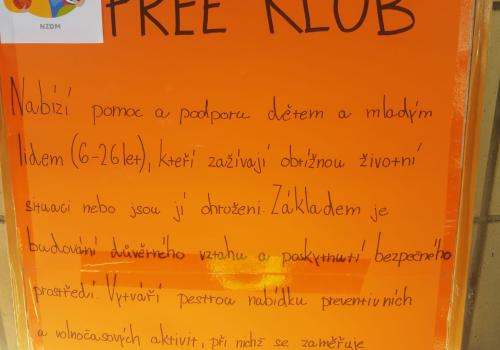 NZDM
FREE KLUB
Nabízí pomoc a podporu dětem a mladým
lidem (6-26 let), kteří zažívají obtížnou životní
situaci nebo jsou jí ohroženi. Základem je
budování důvěrného vztahu a poskytnutí bezpečného
prostředí. Vytváří pestrou nabídku preventivních
a volnočasových aktivit, při nichž se zaměřuje